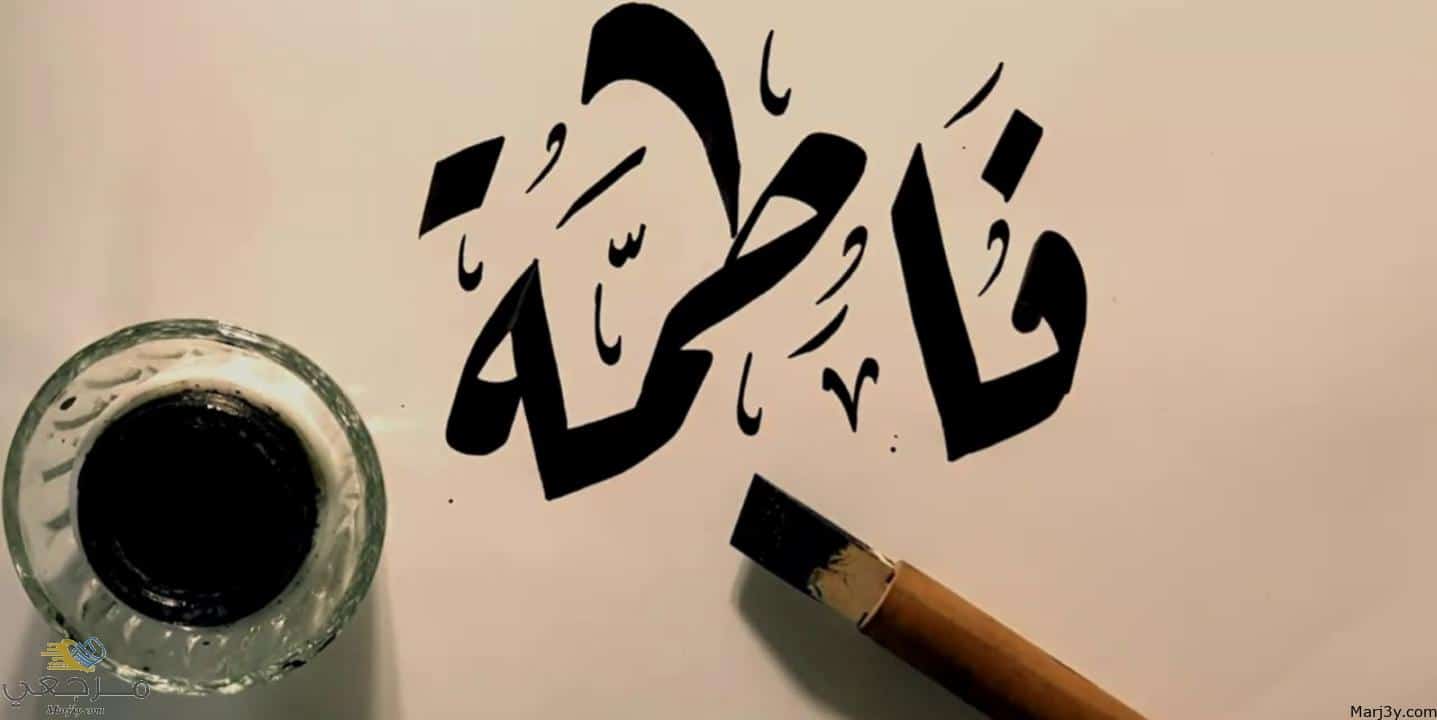 فَاطِمَّةُ
مرجعي
Marj3y.com
Marj3y.com